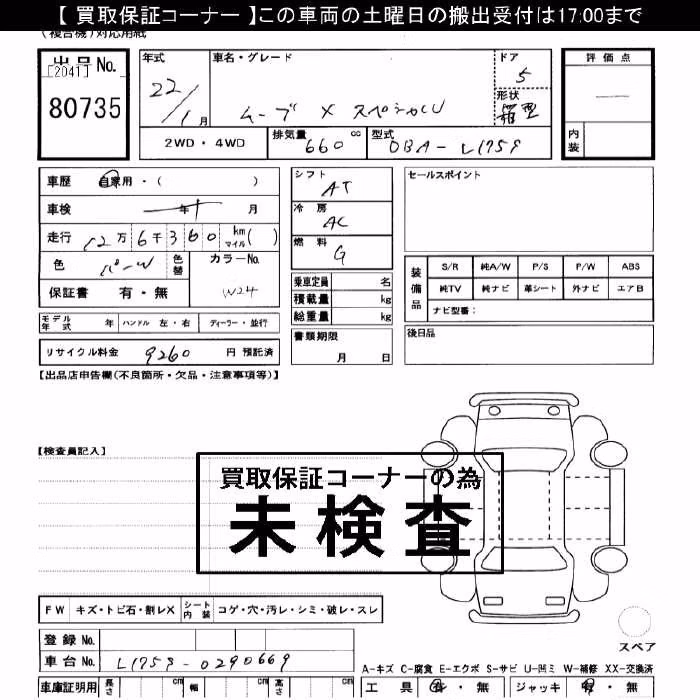 【 買取保証コーナー 】この車両の土曜日の搬出受付は17:00まで
(複合機)対応用紙
出品No.
[2041]
80735
年式
22/1月
車名・グレード
ムーブ X スペシャル
ドア
5
形状
箱型
評価点
—
内装
2WD・4WD
排気量 660 cc
型式 DBA-L175S
車歴 自家用・( )
車検 年 月
走行 12万6千360 km マイル( )
色 パール 色替
カラーNo. W24
保証書 有・無
シフト AT
冷房 AC
燃料 G
乗車定員 名
積載量 kg
総重量 kg
セールスポイント
装備品
S/R 純A/W P/S P/W ABS
純TV 純ナビ 革シート 外ナビ エアB
ナビ型番:
モデル年式 年 ハンドル 左・右 ディーラー・並行
書類期限
月 日
後日品
リサイクル料金 9260 円 預託済
【出品店申告欄(不良箇所・欠品・注意事項等)】
【検査員記入】
買取保証コーナーの為
未検査
FW キズ・トビ石・割レX シート内装 コゲ・穴・汚レ・シミ・破レ・スレ
登録No.
車台No. L175S-0290669
スペア
A-キズ C-腐食 E-エクボ S-サビ U-凹ミ W-補修 XX-交換済
車庫証明用 長さ cm 幅 cm 高さ cm
工具 有・無 ジャッキ 有・無